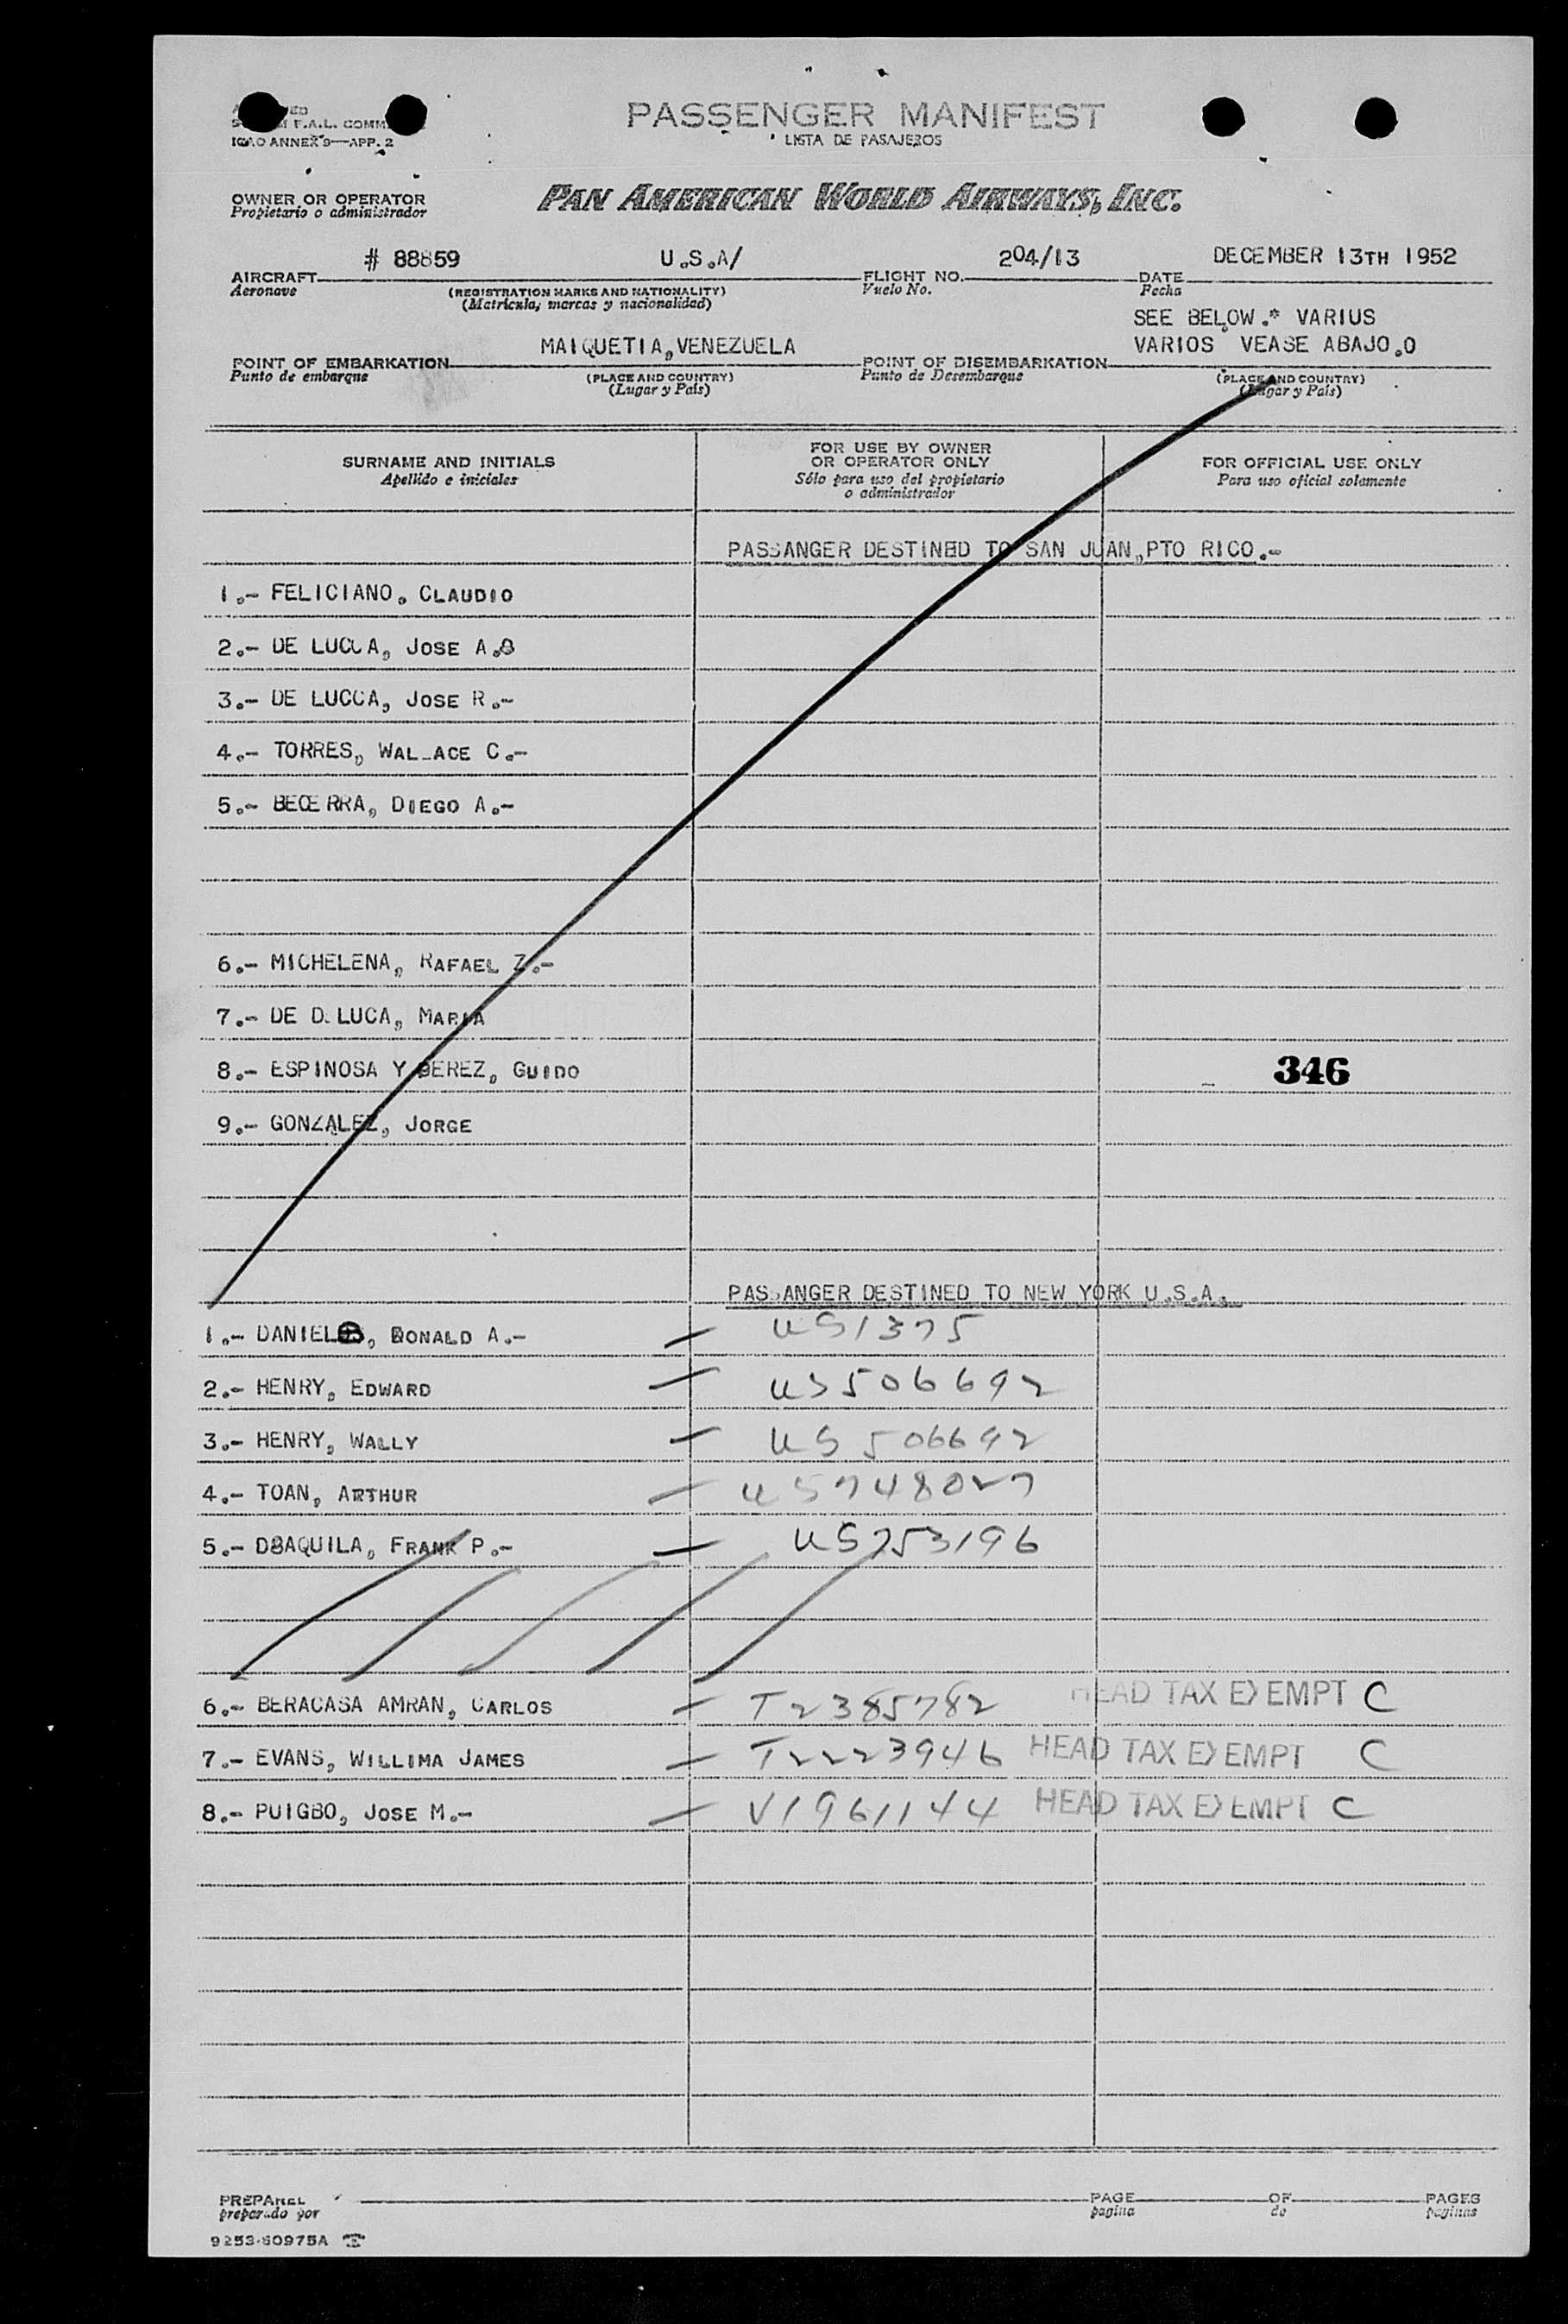 PASSENGER MANIFEST
F.A.L. COMM
LISTA DE PASAJEROS
ICAO ANNEX 9—APP. 2
OWNER OR OPERATOR
Propietario o administrador
PAN AMERICAN WORLD AIRWAYS, INC.
AIRCRAFT # 88859 U.S.A/ FLIGHT NO. 204/13 DATE DECEMBER 13TH 1952
Aeronave (REGISTRATION MARKS AND NATIONALITY) Vuelo No. Fecha
(Matrícula, marcas y nacionalidad)
SEE BELOW.* VARIUS
POINT OF EMBARKATION MAIQUETIA, VENEZUELA POINT OF DISEMBARKATION VARIOS VEASE ABAJO.O
Punto de embarque (PLACE AND COUNTRY) Punto de Desembarque (PLACE AND COUNTRY)
(Lugar y País) (Lugar y País)
SURNAME AND INITIALS FOR USE BY OWNER OR OPERATOR ONLY FOR OFFICIAL USE ONLY
Apellido e iniciales Sólo para uso del propietario o administrador Para uso oficial solamente
PASSANGER DESTINED TO SAN JUAN, PTO RICO.-
1.- FELICIANO, CLAUDIO
2.- DE LUCCA, JOSE A.
3.- DE LUCCA, JOSE R.-
4.- TORRES, WALLACE C.-
5.- BECERRA, DIEGO A.-
6.- MICHELENA, RAFAEL Z.-
7.- DE D. LUCA, MARIA
8.- ESPINOSA Y PEREZ, GUIDO 346
9.- GONZALEZ, JORGE
PASSANGER DESTINED TO NEW YORK U.S.A.
1.- DANIEL, DONALD A.- — US1375
2.- HENRY, EDWARD — US506692
3.- HENRY, WALLY — US 506692
4.- TOAN, ARTHUR — US748027
5.- DSAQUILA, FRANK P.- — US253196
6.- BERACASA AMRAN, CARLOS — T2385782 HEAD TAX EXEMPT C
7.- EVANS, WILLIMA JAMES — T2223946 HEAD TAX EXEMPT C
8.- PUIGBO, JOSE M.- — V1961144 HEAD TAX EXEMPT C
PREPARED PAGE OF PAGES
preparado por pagina de paginas
9253-60975A